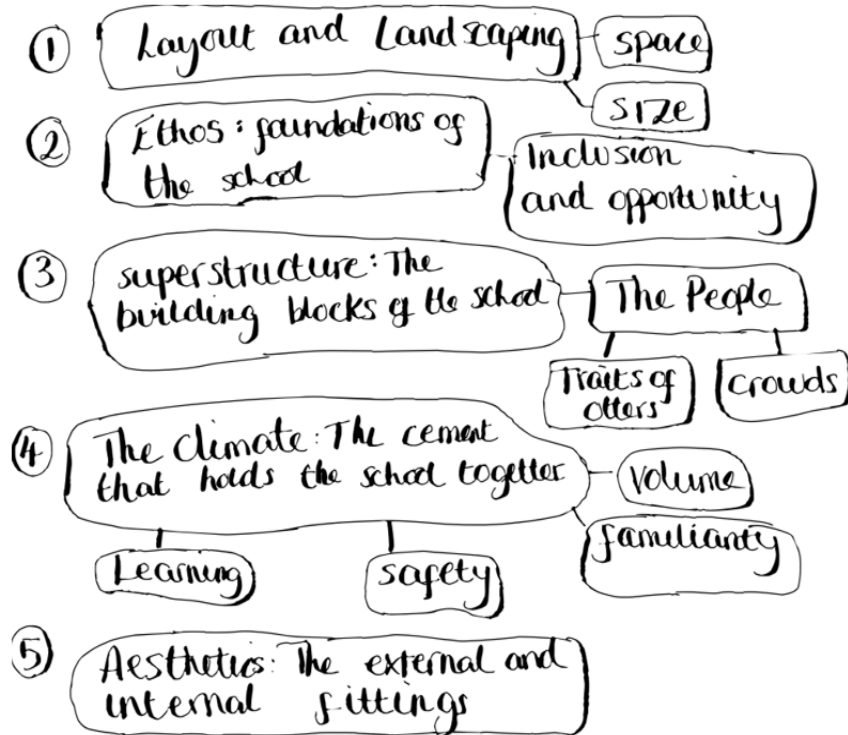 ① Layout and Landscaping
space
size
② Ethos: foundations of
the school
Inclusion
and opportunity
③ superstructure: The
building blocks of the school
The People
Traits of
others
crowds
④ The climate: The cement
that holds the school together
volume
familiarity
Learning
safety
⑤ Aesthetics: The external and
internal fittings